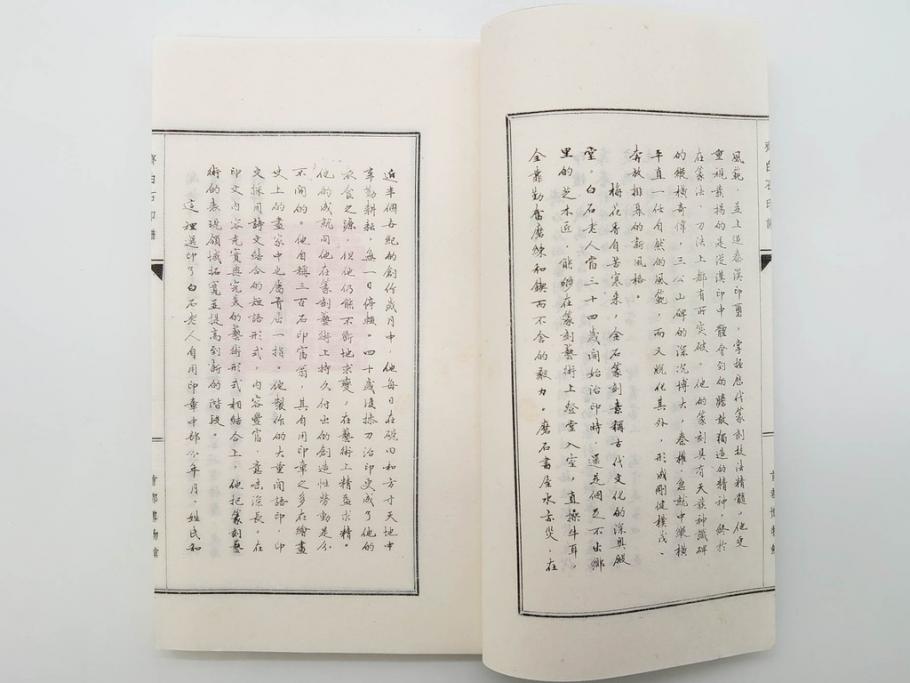 風範，並上追秦漢印璽，掌握歷代篆刻技法精髓。他更
重視發揚的是從漢印中體會到的膽敢獨造的精神，終於
在篆法、刀法上都有所突破。他的篆刻具有天發神讖碑
的縱橫奇偉，三公山碑的深沉博大，秦權、急就中縱橫
平直一任自然的風範，而又脫化其外，形成剛健樸茂、
奔放相尋的新風格。
梅花香自苦寒來，金石篆刻素稱古代文化的深奧殿
堂。白石老人當三十四歲開始治印時，還是個足不出鄉
里的芝木匠，能夠在篆刻藝術上登堂入室，直操牛耳，
全靠勤奮磨練和鍥而不舍的毅力。磨石書屋水亦災，在
近半個世紀的創作歲月中，他每日在硯田和方寸天地中
辛勤耕耘，無一日停頓。四十歲後操刀治印更成了他的
衣食之源，但他仍能不斷地求變，在藝術上精益求精。
他的成就同他在篆刻藝術上持久付出的創造性勞動是分
不開的。他自稱三百石印富翁，其自用印章之多在繪畫
史上的畫家中也屬首屈一指。他製作的大量閑語印，印
文採用詩文結合的短語形式，內容豐富，意味深長。在
印文內容充實與完美的藝術形式相結合上，他把篆刻藝
術的表現領域拓寬並提高到新的階段。
這裡選印了白石老人自用印章中部分年月、姓氏和
齊白石印譜
首都博物館
齊白石印譜
首都博物館